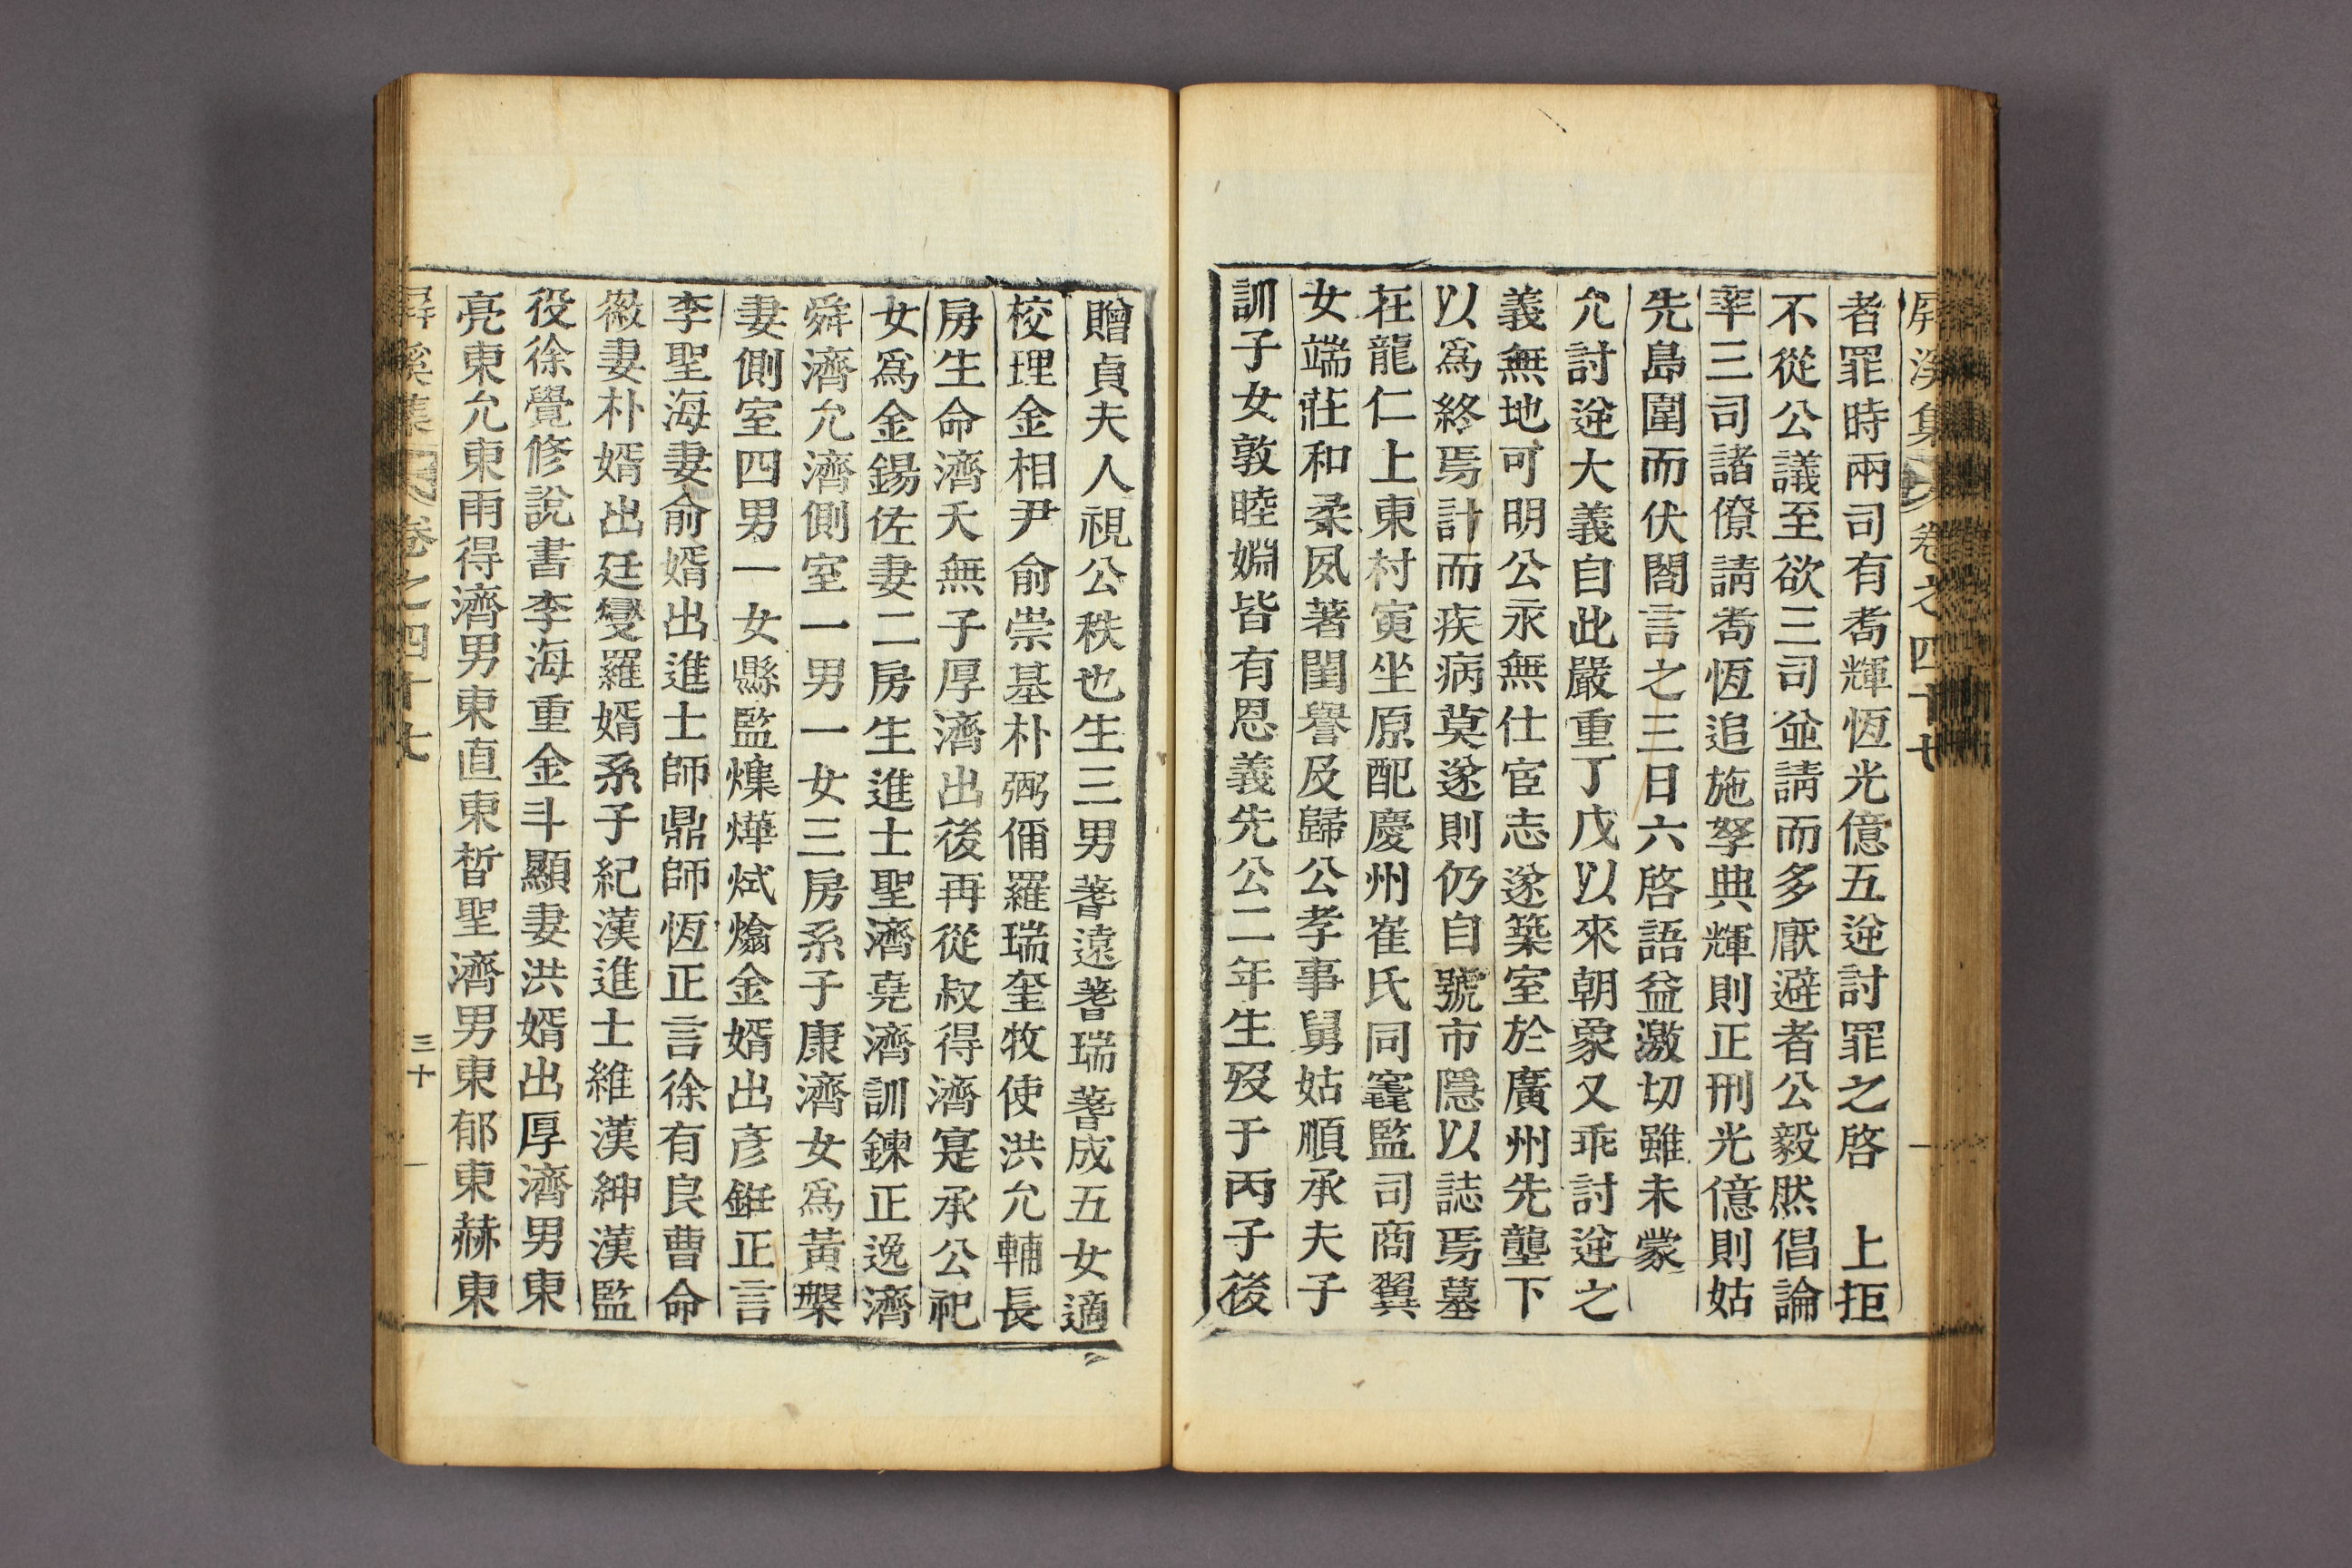 屛溪集 卷之四十七
者罪時兩司有喬輝恆光億五逆討罪之啓 上拒
不從公議至欲三司並請而多厭避者公毅然倡論
率三司諸僚請喬恆追施孥典輝則正刑光億則姑
先島圍而伏閤言之三日六啓語益激切雖未蒙
允討逆大義自此嚴重丁戊以來朝象又乖討逆之
義無地可明公永無仕宦志遂築室於廣州先壟下
以爲終焉計而疾病莫遂則仍自號市隱以誌焉墓
在龍仁上東村寅坐原配慶州崔氏同竁監司商翼
女端莊和柔夙著閨譽及歸公孝事舅姑順承夫子
訓子女敦睦婣皆有恩義先公二年生歿于丙子後
贈貞夫人視公秩也生三男蓍遠蓍瑞蓍成五女適
校理金相尹俞崇基朴弼俌羅瑞奎牧使洪允輔長
房生命濟夭無子厚濟出後再從叔得濟寔承公祀
女爲金錫佐妻二房生進士聖濟堯濟訓鍊正逸濟
舜濟允濟側室一男一女三房系子康濟女爲黃槃
妻側室四男一女縣監㷫燁烒熻金婿出彦鉦正言
李聖海妻俞婿出進士師鼎師恆正言徐有良曹命
徽妻朴婿出廷燮羅婿系子紀漢進士維漢紳漢監
役徐覺修說書李海重金斗顯妻洪婿出厚濟男東
亮東允東雨得濟男東直東晳聖濟男東郁東赫東
屛溪集 卷之四十七 三十